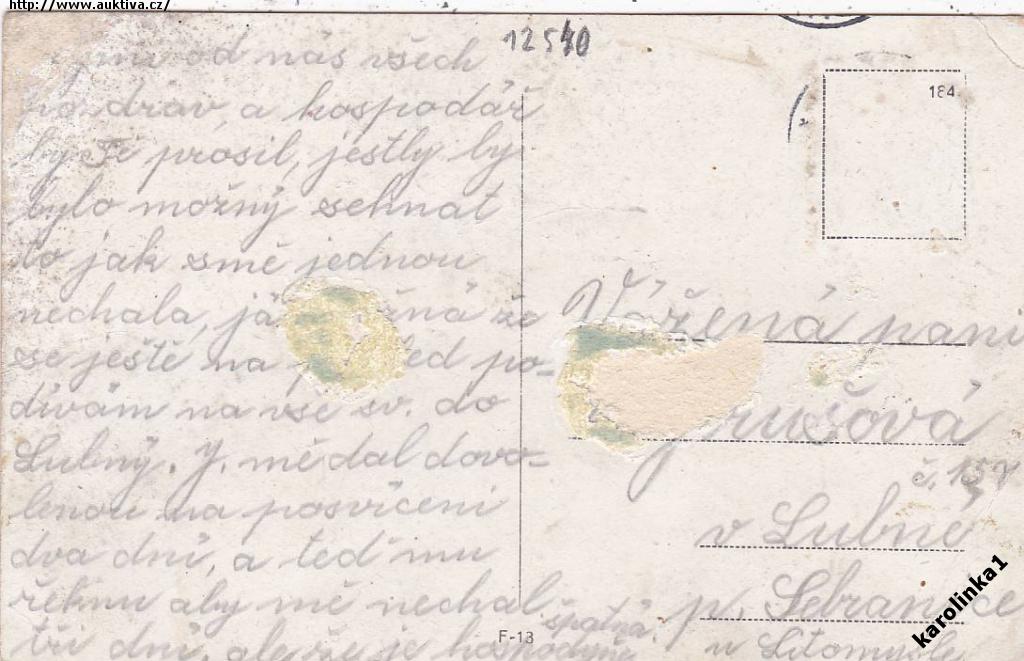 http://www.auktiva.cz/
12540
184
od nás všech
pozdrav, a hospodář
by Tě prosil, jestly by
bylo možný sehnat
to jak smě jednou
nechala, já že
se ještě na po-
dívám na vše sv. do
Lubný. J. mě dal dovo-
lenou na posvícení
dva dní, a teď mu
řeknu aby mě nechal
tři dní, ale že je hospodyně
špatná
F-13
Vážená paní
č. 157
v Lubné
p. Sebranice
u Litomyšle
karolinka1